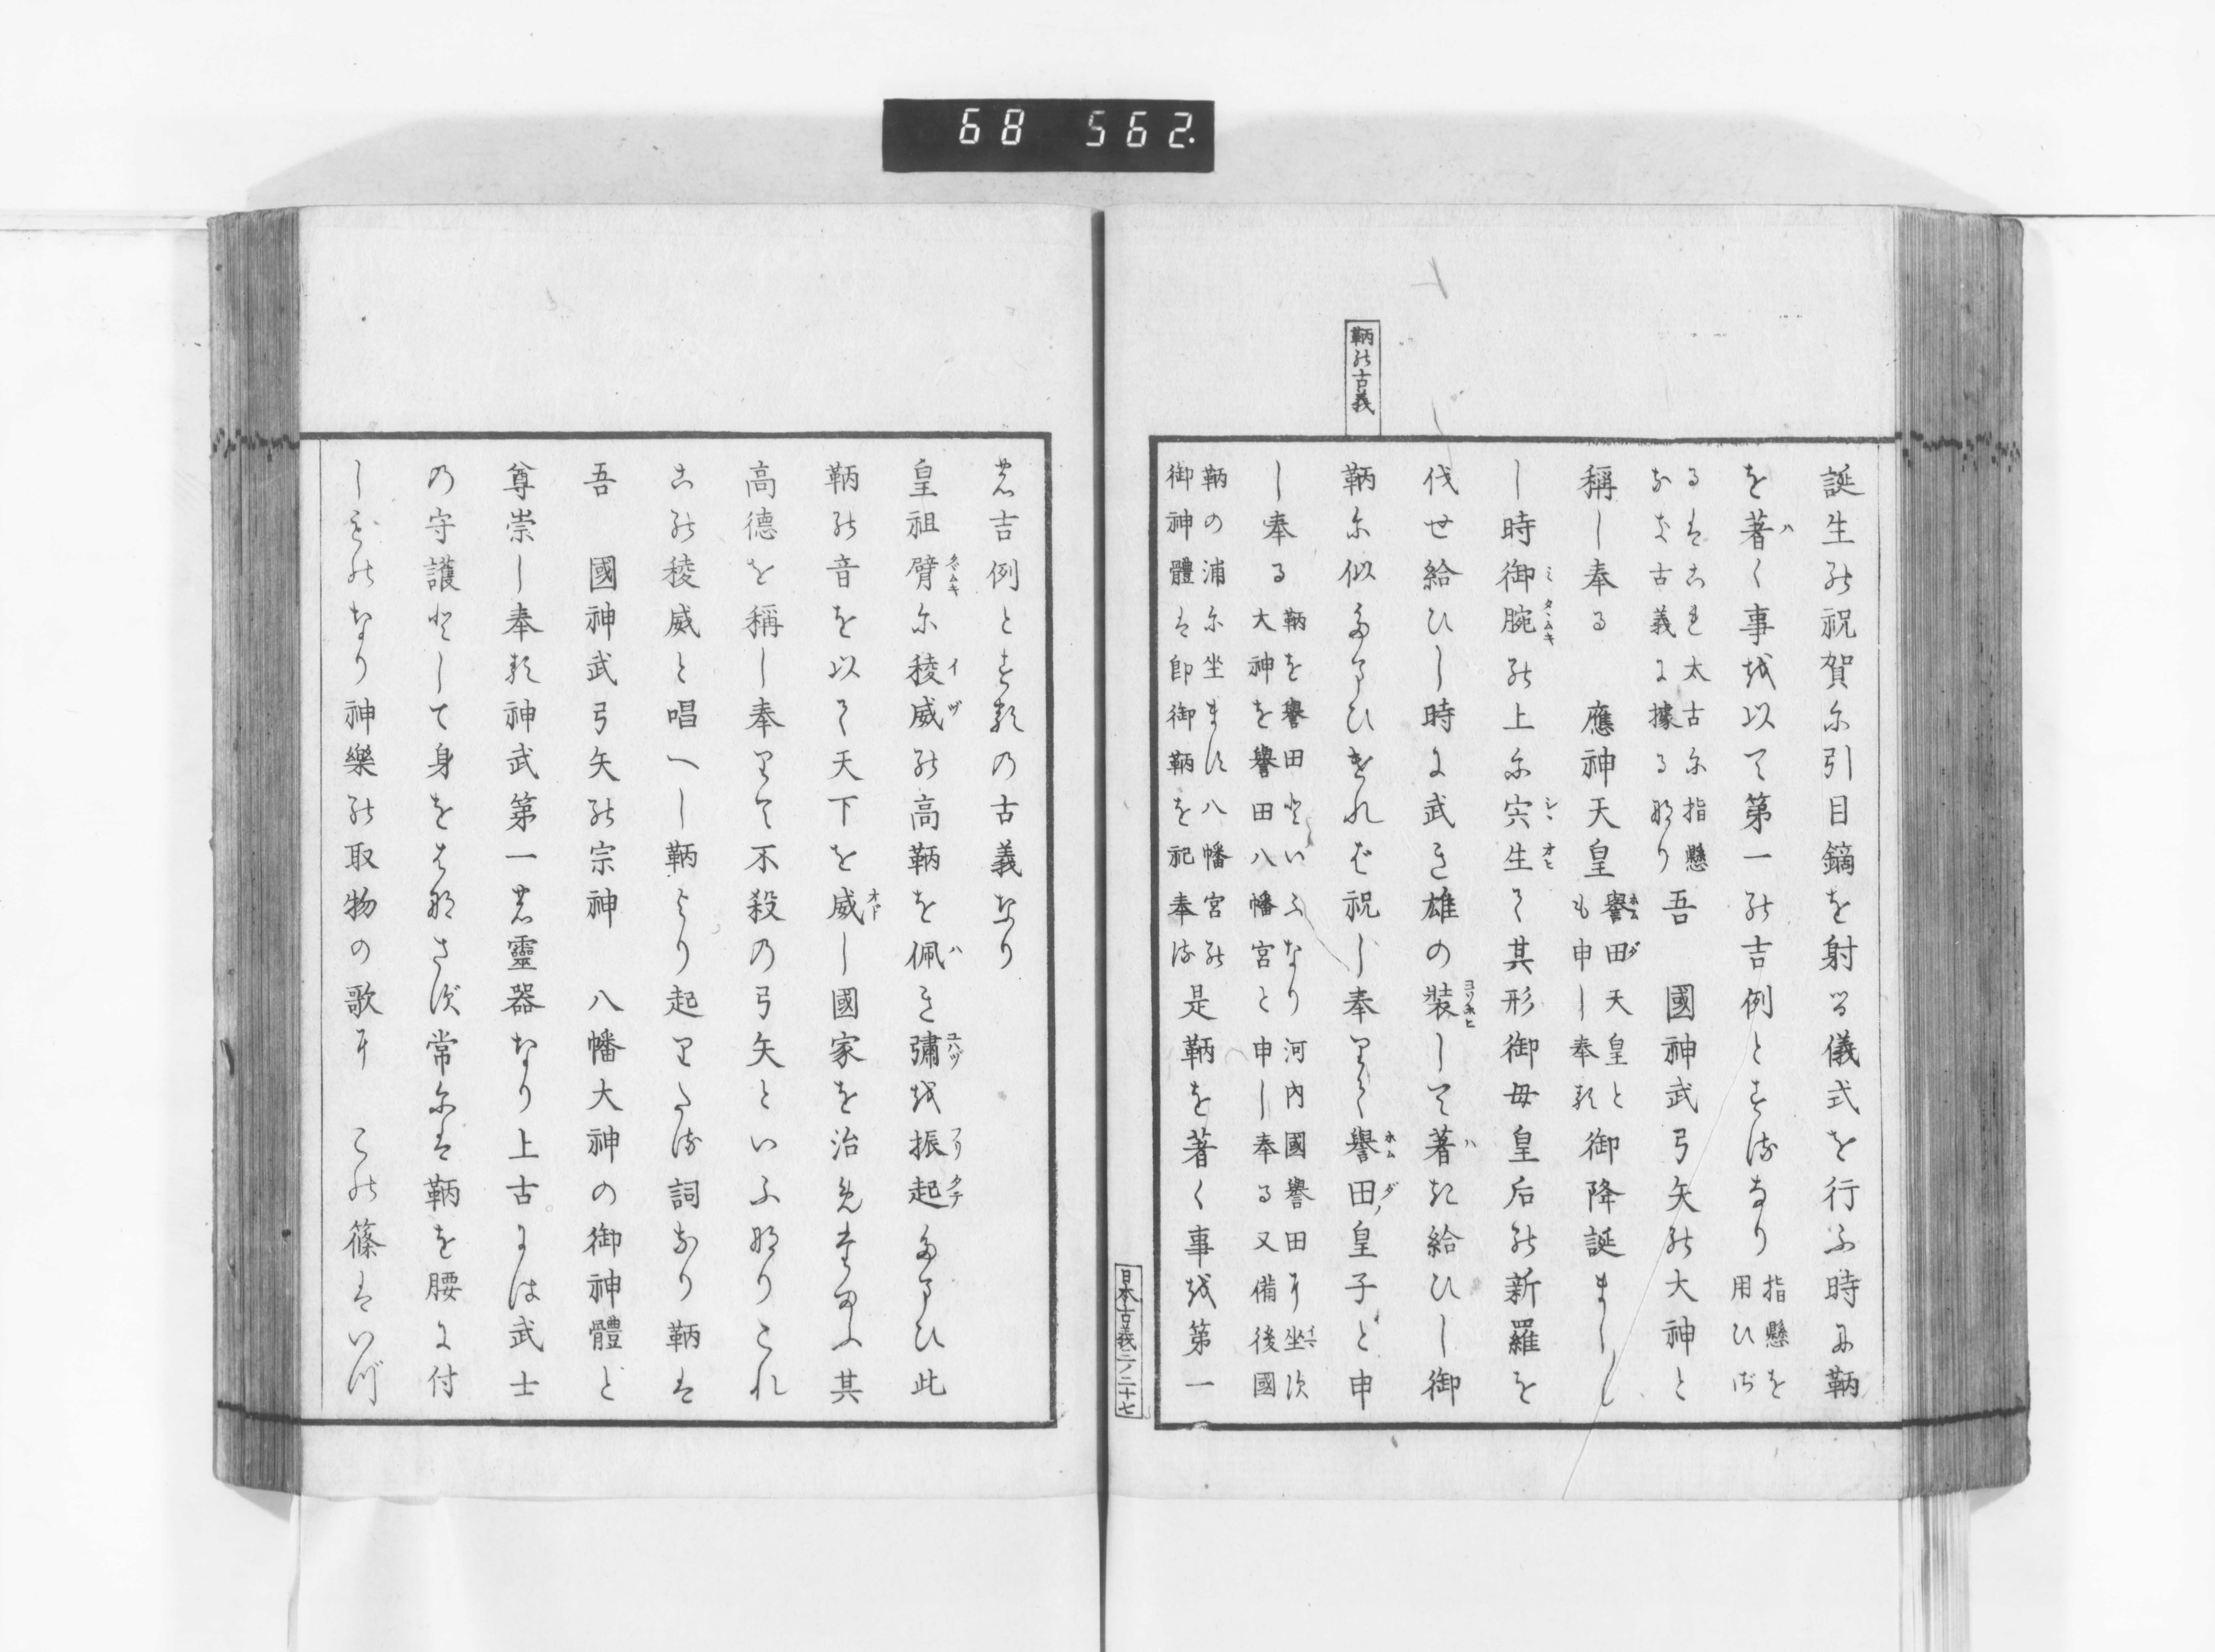 68 562.
鞆の古義
誕生の祝賀に引目鏑を射る儀式を行ふ時に鞆
を著く事を以て第一の吉例とする なり 指懸を
用ひざ
るはこれ太古に指懸
なき古義に據るなり 吾 國神武弓矢の大神と
稱し奉る 應神天皇 譽田天皇と
も申し奉る 御降誕ましし
し時御腕の上に宍生て其形御母皇后の新羅を
伐せ給ひし時に武き雄の装して著き給ひし御
鞆に似たまひければ祝し奉りて譽田皇子と申
し奉る 鞆を譽田といふなり河内國譽田に坐す
大神を譽田八幡宮と申し奉る又備後國
鞆の浦に坐ます八幡宮の
御神體は即御鞆を祀奉る 是鞆を著く事を第一
日本古義三ノ二十七
の吉例とするの古義なり
皇祖臂に稜威の高鞆を佩き彇を振起たまひ此
鞆の音を以て天下を威し國家を治めたまふ其
高德を稱し奉りて不殺の弓矢といふなりこれ
この稜威と唱へし鞆より起りたる詞なり鞆は
吾 國神武弓矢の宗神 八幡大神の御神體と
尊崇し奉る神武第一の靈器なり上古には武士
の守護として身をはなさず常には鞆を腰に付
しものなり神樂の取物の歌に この篠はいづ